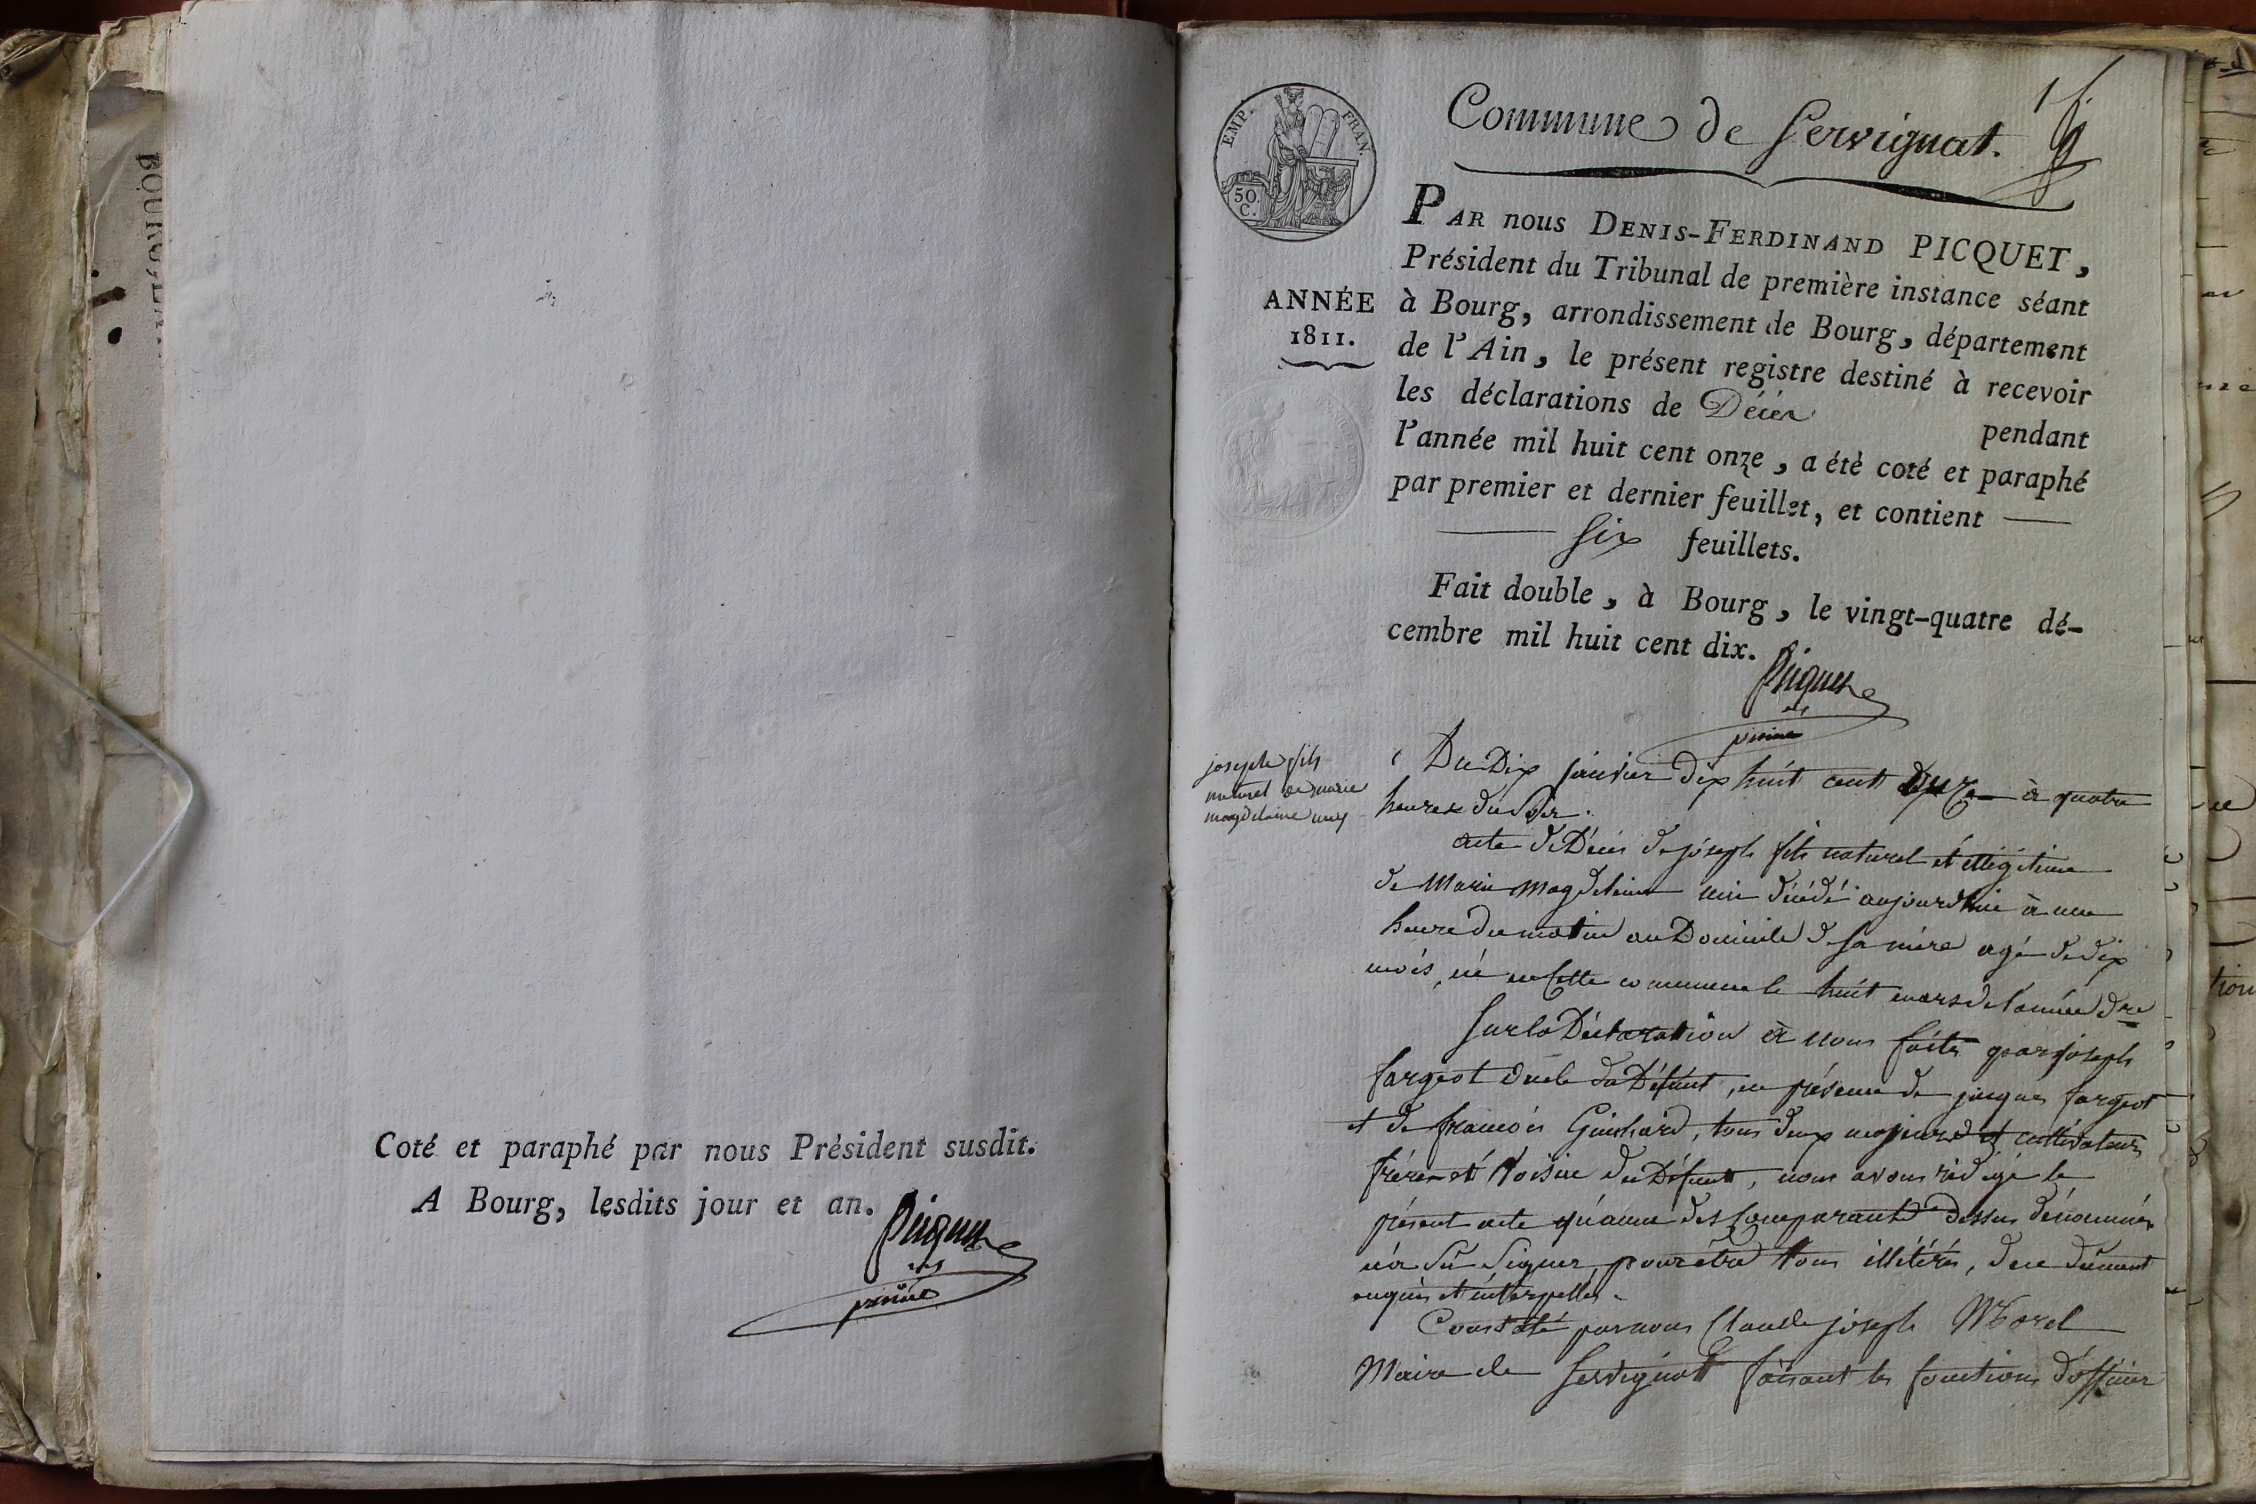 Coté et paraphé par nous Président susdit.
A Bourg, lesdits jour et an.
Picquet
1
Commune de Servignat.
EMP. FRAN.
50.
C.
PAR nous DENIS-FERDINAND PICQUET,
Président du Tribunal de première instance séant
à Bourg, arrondissement de Bourg, département
de l'Ain, le présent registre destiné à recevoir
les déclarations de Décès pendant
l'année mil huit cent onze, a été coté et paraphé
par premier et dernier feuillet, et contient
Six feuillets.
Fait double, à Bourg, le vingt-quatre dé-
cembre mil huit cent dix.
ANNÉE
1811.
Picquet
joseph fils
naturel de marie
magdelaine
Du Dix janvier dix huit cent onze à quatre
heures du soir.
acte de Décès de joseph fils naturel et illégitime
de Marie Magdelaine décédé aujourdhui à une
heure du matin au Domicile de sa mère agé de dix
mois, né en cette commune le huit mars de l'année dre
Sur la Déclaration à nous faite par joseph
fargeot oncle du Défunt, en présence de jacques fargeot
et de francois Guichard, tous deux majeurs et cultivateurs
frère et voisin du Défunt, nous avons rédigé le
présent acte qu'aucun des Comparants dessus dénommés
n'a sû signer pour être tous illitérés, de ce dûment
enquis et interpellés.
Constaté par nous Claude joseph Morel
Maire de Servignat faisant les fonctions d'officier